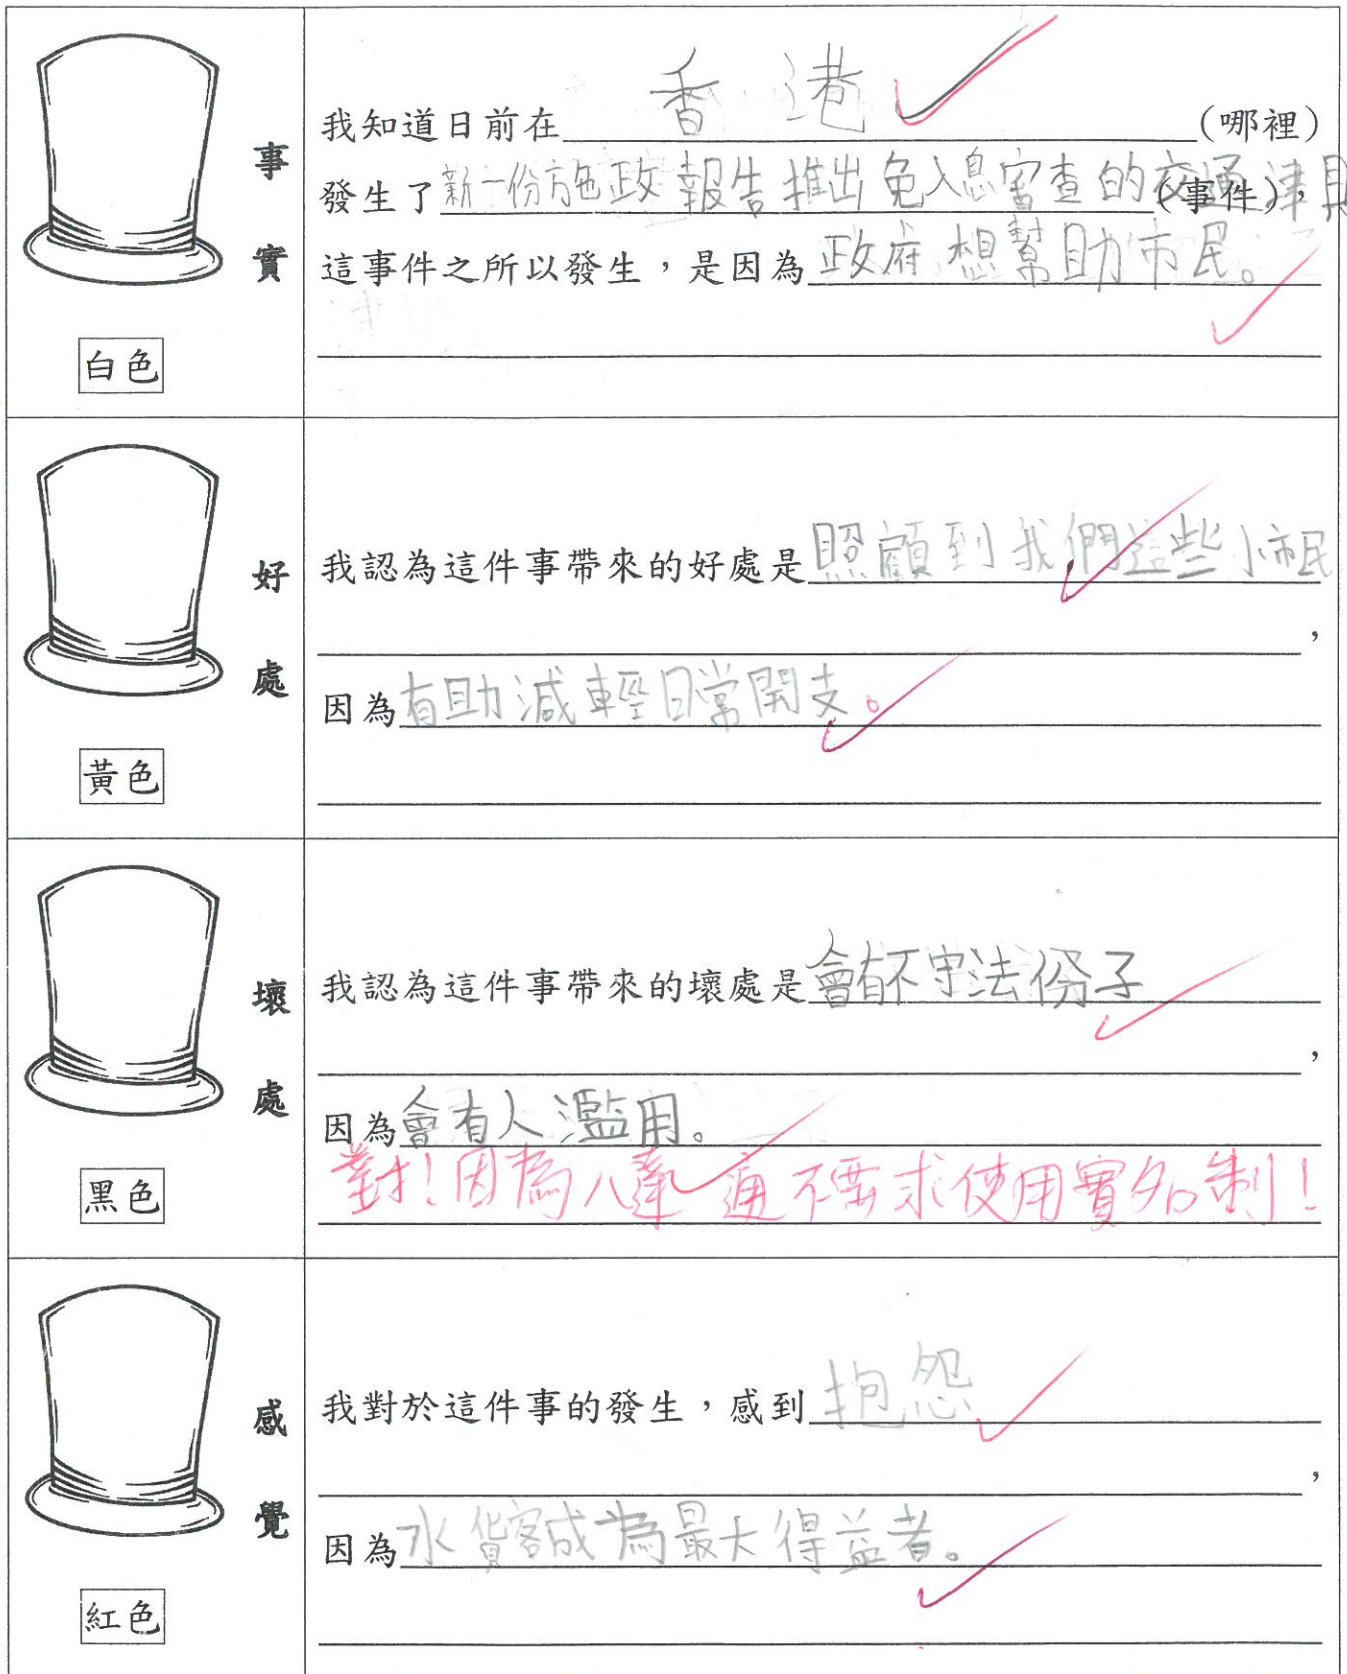 事實
白色
我知道日前在香港(哪裡)
發生了新一份施政報告推出免入息審查的交通津貼(事件),
這事件之所以發生,是因為政府想幫助市民。
好處
黃色
我認為這件事帶來的好處是照顧到我們這些小市民
,
因為有助減輕日常開支。
壞處
黑色
我認為這件事帶來的壞處是會有不守法份子
,
因為會有人濫用。
對!因為八達通不要求使用實名制!
感覺
紅色
我對於這件事的發生,感到抱怨
,
因為水貨客成為最大得益者。